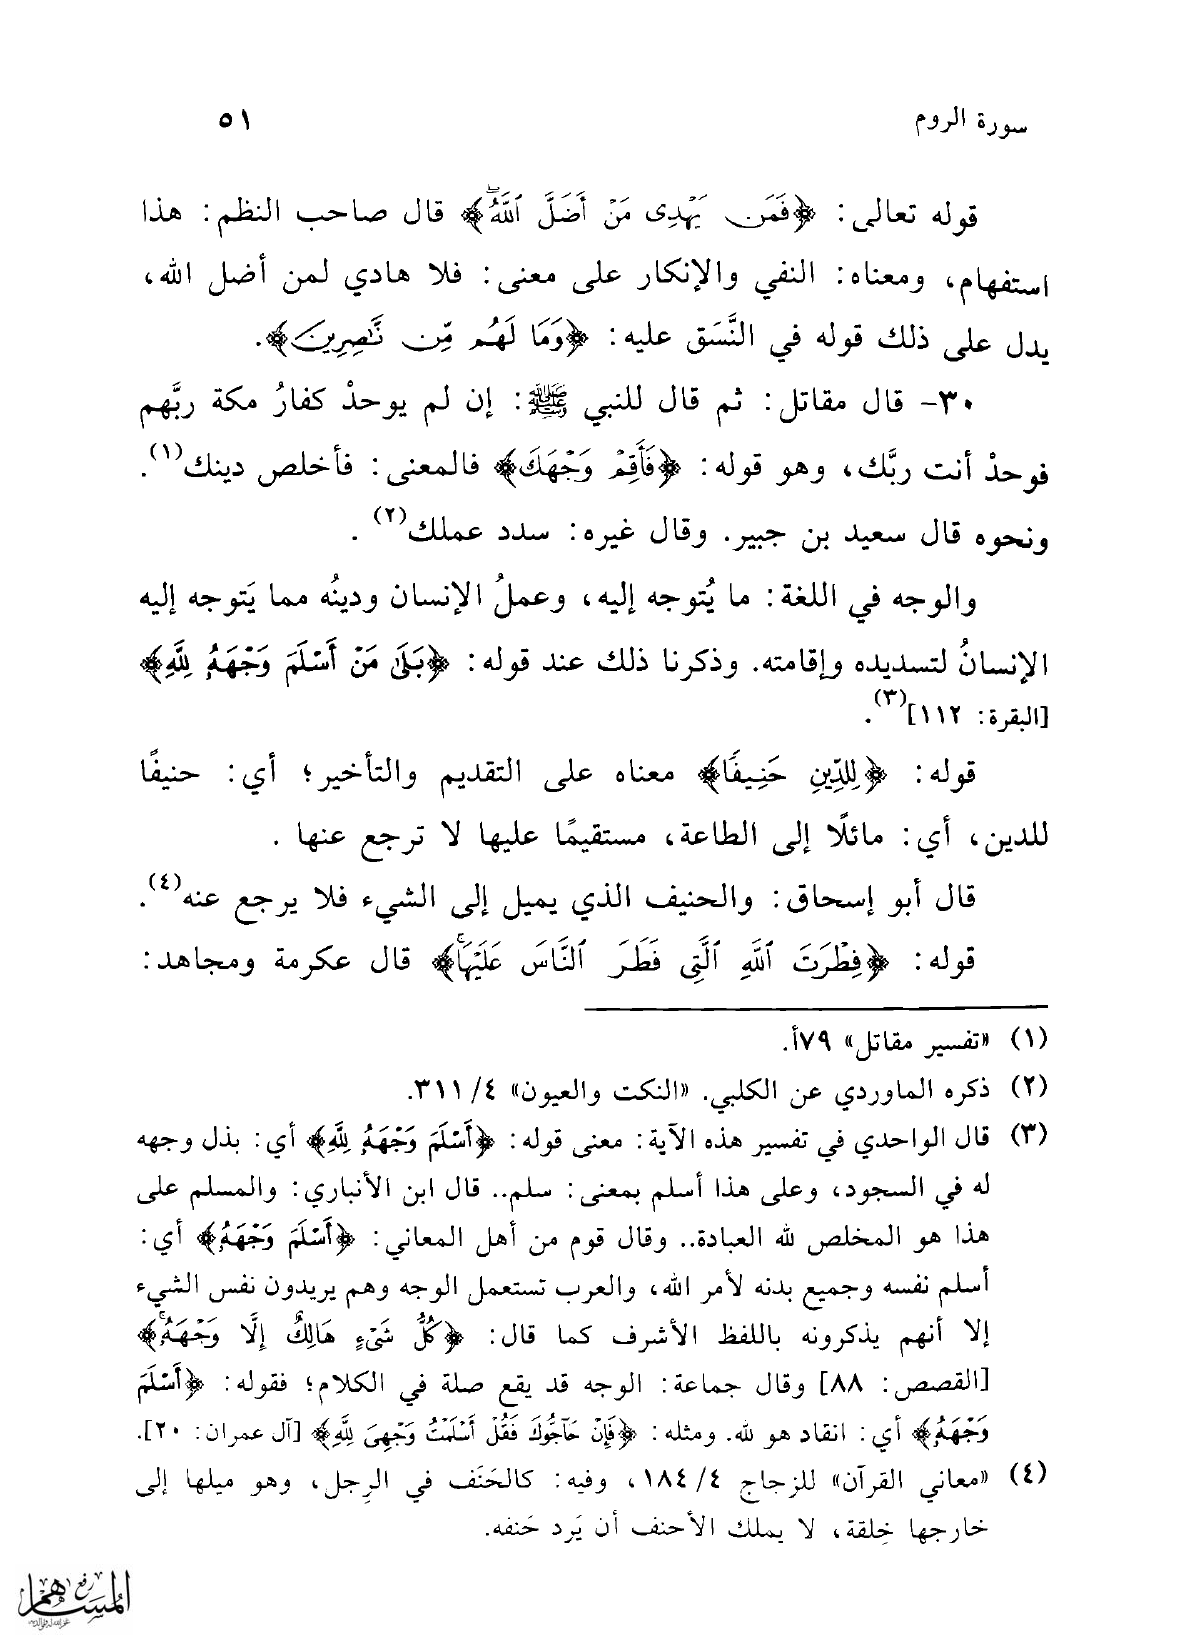 سورة الروم ٥١
قوله تعالى: ﴿فَمَن يَهْدِى مَنْ أَضَلَّ ٱللَّهُ ۖ﴾ قال صاحب النظم: هذا
استفهام، ومعناه: النفي والإنكار على معنى: فلا هادي لمن أضل الله،
يدل على ذلك قوله في النَّسَق عليه: ﴿وَمَا لَهُم مِّن نَّـٰصِرِينَ﴾.
٣٠- قال مقاتل: ثم قال للنبي ﷺ: إن لم يوحدْ كفارُ مكة ربَّهم
فوحدْ أنت ربَّك، وهو قوله: ﴿فَأَقِمْ وَجْهَكَ﴾ فالمعنى: فأخلص دينك(١).
ونحوه قال سعيد بن جبير. وقال غيره: سدد عملك(٢) .
والوجه في اللغة: ما يُتوجه إليه، وعملُ الإنسان ودينُه مما يَتوجه إليه
الإنسانُ لتسديده وإقامته. وذكرنا ذلك عند قوله: ﴿بَلَىٰ مَنْ أَسْلَمَ وَجْهَهُۥ لِلَّهِ﴾
[البقرة: ١١٢](٣).
قوله: ﴿لِلدِّينِ حَنِيفًا﴾ معناه على التقديم والتأخير؛ أي: حنيفًا
للدين، أي: مائلًا إلى الطاعة، مستقيمًا عليها لا ترجع عنها .
قال أبو إسحاق: والحنيف الذي يميل إلى الشيء فلا يرجع عنه(٤).
قوله: ﴿فِطْرَتَ ٱللَّهِ ٱلَّتِى فَطَرَ ٱلنَّاسَ عَلَيْهَا ۚ﴾ قال عكرمة ومجاهد:
(١) «تفسير مقاتل» ٧٩أ.
(٢) ذكره الماوردي عن الكلبي. «النكت والعيون» ٤/ ٣١١.
(٣) قال الواحدي في تفسير هذه الآية: معنى قوله: ﴿أَسْلَمَ وَجْهَهُۥ لِلَّهِ﴾ أي: بذل وجهه
له في السجود، وعلى هذا أسلم بمعنى: سلم.. قال ابن الأنباري: والمسلم على
هذا هو المخلص لله العبادة.. وقال قوم من أهل المعاني: ﴿أَسْلَمَ وَجْهَهُۥ﴾ أي:
أسلم نفسه وجميع بدنه لأمر الله، والعرب تستعمل الوجه وهم يريدون نفس الشيء
إلا أنهم يذكرونه باللفظ الأشرف كما قال: ﴿كُلُّ شَىْءٍ هَالِكٌ إِلَّا وَجْهَهُۥ ۚ﴾
[القصص: ٨٨] وقال جماعة: الوجه قد يقع صلة في الكلام؛ فقوله: ﴿أَسْلَمَ
وَجْهَهُۥ﴾ أي: انقاد هو لله. ومثله: ﴿فَإِنْ حَآجُّوكَ فَقُلْ أَسْلَمْتُ وَجْهِىَ لِلَّهِ﴾ [آل عمران: ٢٠].
(٤) «معاني القرآن» للزجاج ٤/ ١٨٤، وفيه: كالحَنَف في الرِجل، وهو ميلها إلى
خارجها خِلقة، لا يملك الأحنف أن يَرد حَنفه.